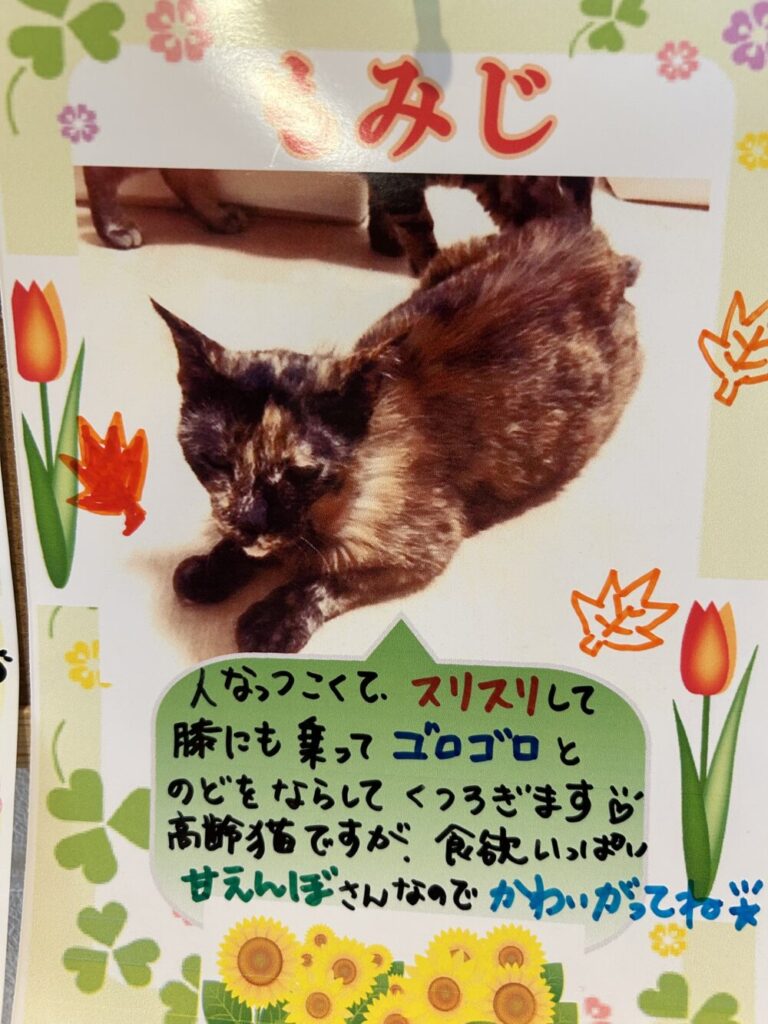 もみじ
人なっつこくて、スリスリして
膝にも乗って ゴロゴロと
のどをならして くつろぎます
高齢猫ですが、食欲いっぱい
甘えんぼさんなので かわいがってね